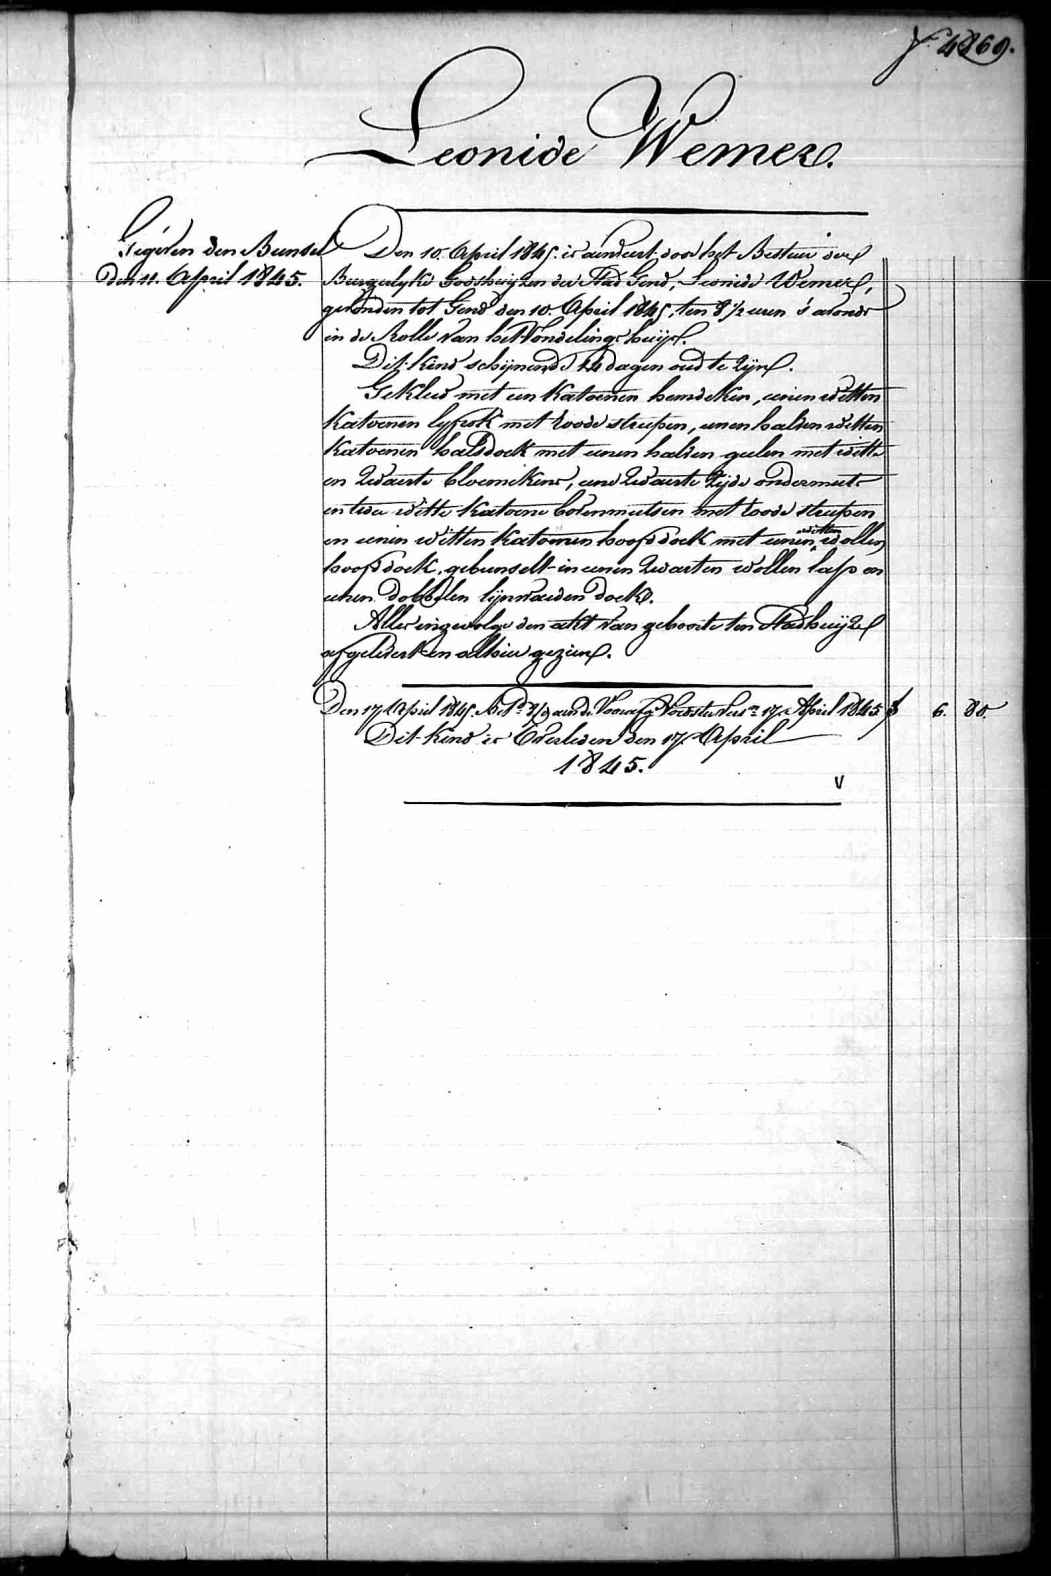 f. 4269.
Leonide Wemer.
Gegeven den Bunsel
den 11. April 1845.
Den 10. April 1845. is aenveert door het Bestuur der
Burgerlyke Godshuijzen der Stad Gend, Leonide Wemer,
gevonden tot Gend den 10. April 1845, ten 8 ½ uren 's avonds
in de Rolle van het Vondelingshuijs.
Dit kind schijnende 14 dagen oud te zijn.
Gekleed met een katoenen hemdeken, eenen witten
katoenen lyfrok met roode streepen, eenen halven witten
katoenen halsdoek met eenen halven geelen met witte
en zwaerte bloemekens, eene zwaerte zijde ondermuts
en twee witte katoene bovenmutsen met roode streepen
en eenen witten katoenen hoofddoek met eenen witten wollen
hoofddoek, gebunselt in eenen zwarten wollen lap en
eenen dobbelen lijnwaeden doek.
Alles ingevolge den akt van geboorte ten Stadhuijze
afgeleverd en alhier gezien.
Den 17 April 1845. aende Voedster 17. April 1845 f 6. 80.
Dit kind is Overleden den 17. April
1845.
v